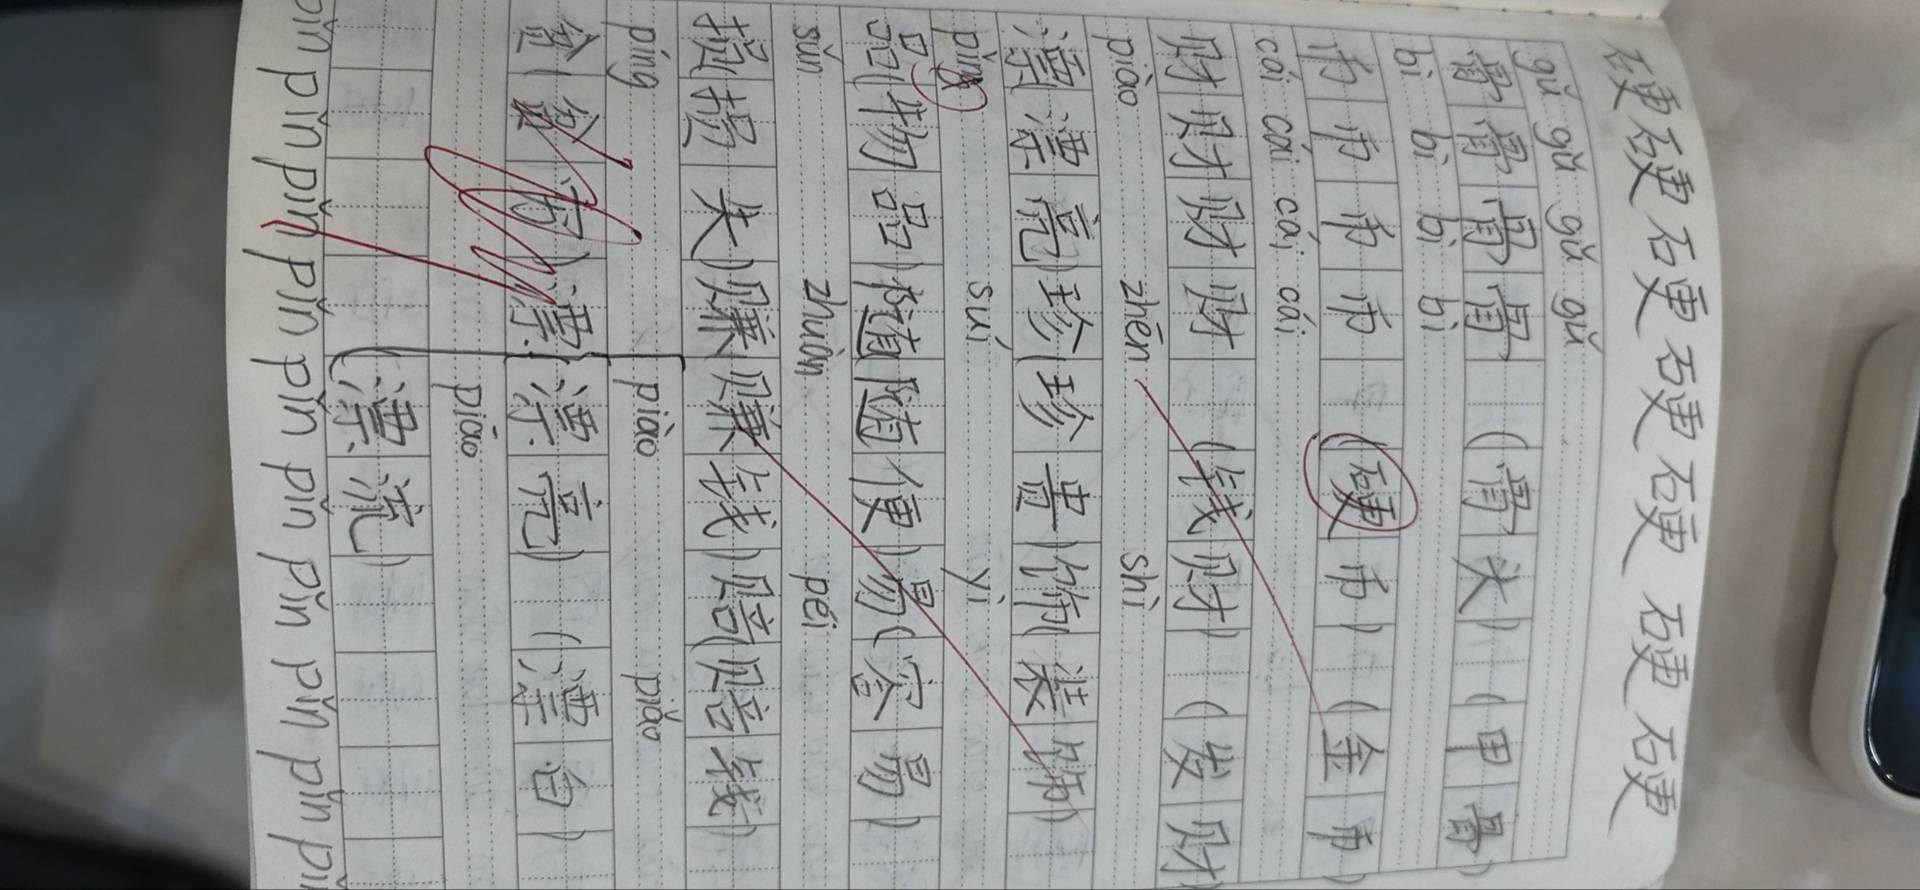 硬硬硬硬硬硬硬
gǔ gǔ gǔ gǔ
骨骨骨骨 (骨头) (甲骨)
bì bì bì bì
币币币币 (硬币) (金币)
cái cái cái cái
财财财财 (钱财) (发财)
piào zhēn shì
漂漂亮)珍(珍贵)饰(装饰)
pǐng suí yì
品(物品)随随便)易(容易)
sǔn zhuàn péi
损损失)赚赚钱)赔(赔钱)
píng piào piǎo
漂 漂亮) (漂白)
piāo
(漂流)
pǐn pǐn pǐn pǐn pǐn pǐn pǐn pǐn pǐn